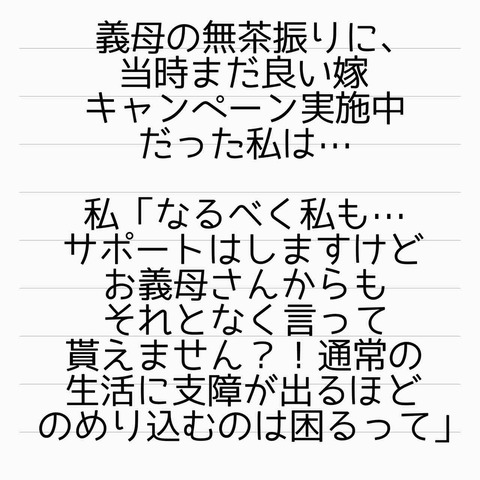 義母の無茶振りに、
当時まだ良い嫁
キャンペーン実施中
だった私は…
私「なるべく私も…
サポートはしますけど
お義母さんからも
それとなく言って
貰えません？！通常の
生活に支障が出るほど
のめり込むのは困るって」